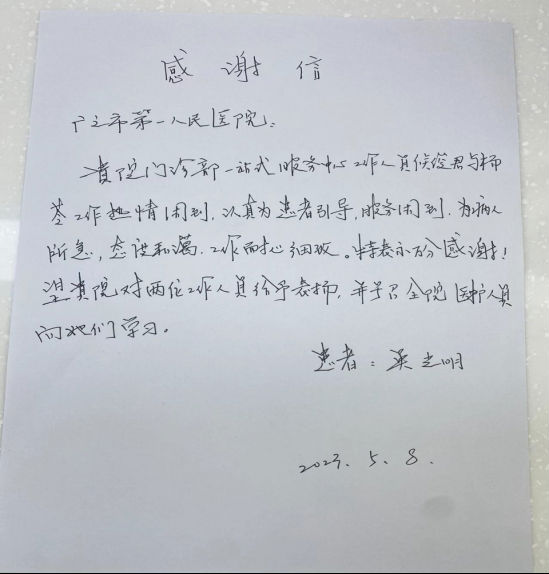 感谢信
广元市第一人民医院：
贵院门诊部一站式服务中心工作人员侯俊君与杨
苓工作热情周到，认真为患者引导，服务周到，为病人
所急，态度和蔼，工作耐心细致。特表示万分感谢！
望贵院对两位工作人员给予表扬，并号召全院医护人员
向她们学习。
患者：吴光明
2023.5.8.